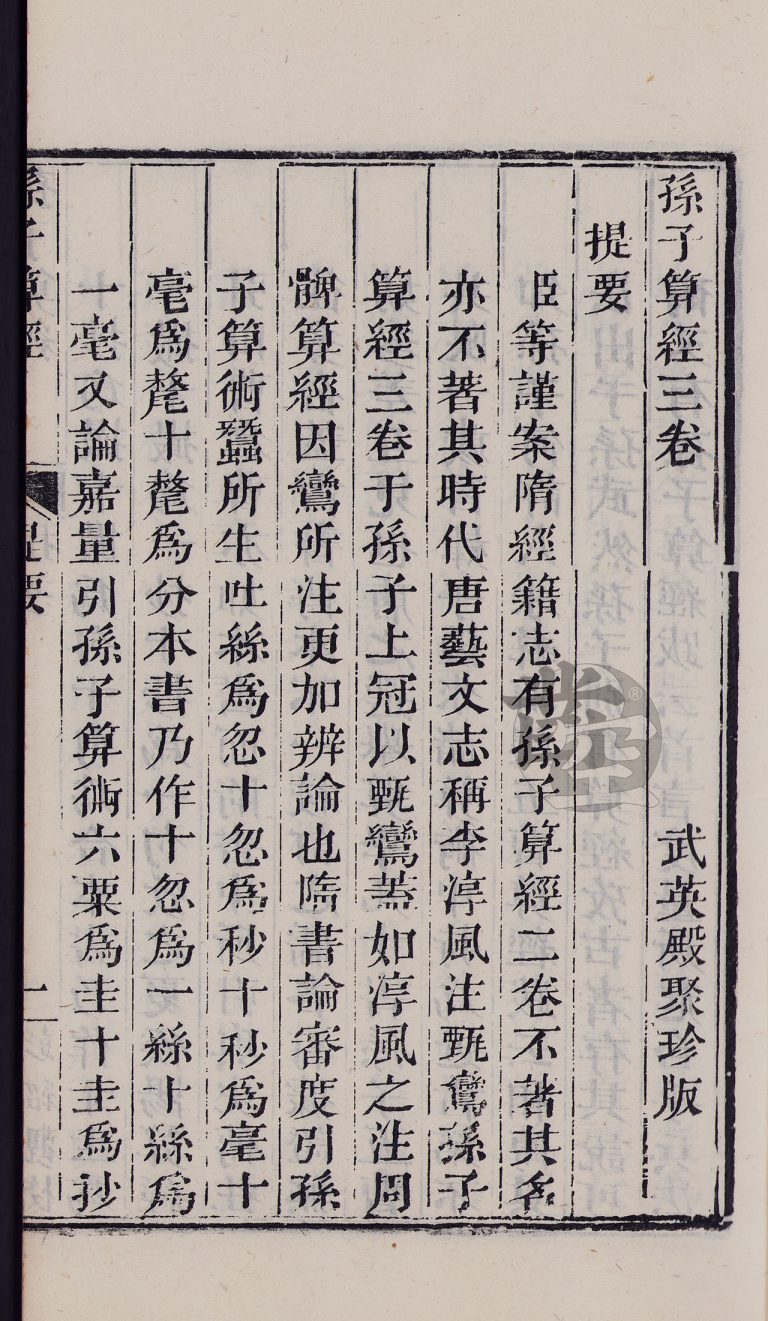 孫子算經三卷 武英殿聚珍版
提要
臣等謹案隋經籍志有孫子算經二卷不著其名
亦不著其時代唐藝文志稱李淳風注甄鸞孫子
算經三卷于孫子上冠以甄鸞蓋如淳風之注周
髀算經因鸞所注更加辨論也隋書論審度引孫
子算術蠶所生吐絲爲忽十忽爲秒十秒爲毫十
毫爲氂十氂爲分本書乃作十忽爲一絲十絲爲
一毫又論嘉量引孫子算術六粟爲圭十圭爲抄
孫子算經 提要 一